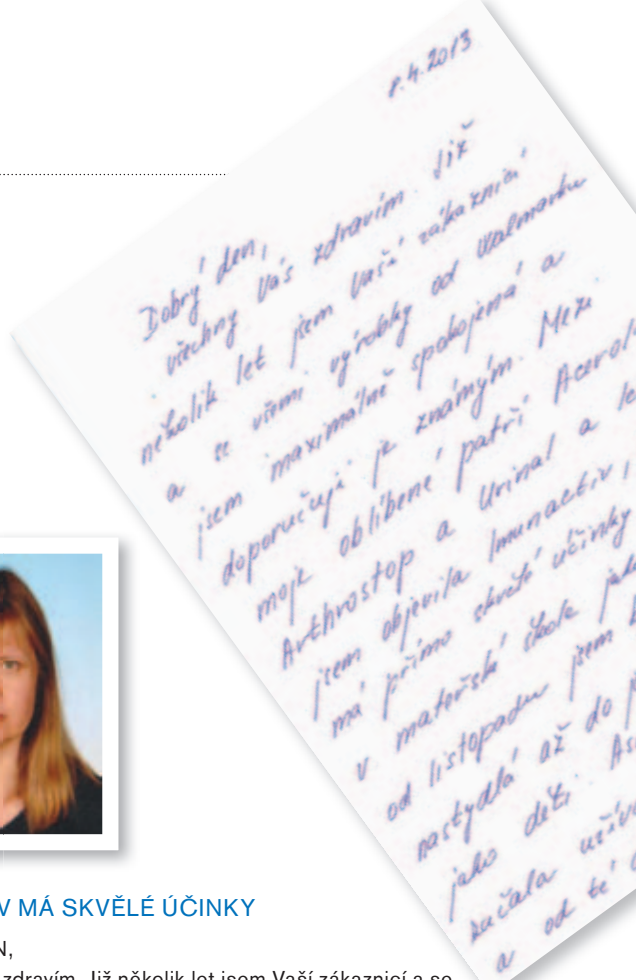 8.4.2013
Dobrý den,
všechny Vás zdravím. Již
několik let jsem Vaší zákaznicí
a se všemi výrobky od Walmarku
jsem maximálně spokojená a
doporučuji je známým. Mezi
moje oblíbené patří Acerol
Arthrostop a Urinal a le
jsem objevila Imunactiv,
má přímo skvělé účinky
v mateřské škole jako
od listopadu jsem b
nastydlá až do j
jako děti. Asi
začala užív
a od té d
V MÁ SKVĚLÉ ÚČINKY
N,
zdravím. Již několik let jsem Vaší zákaznicí a se